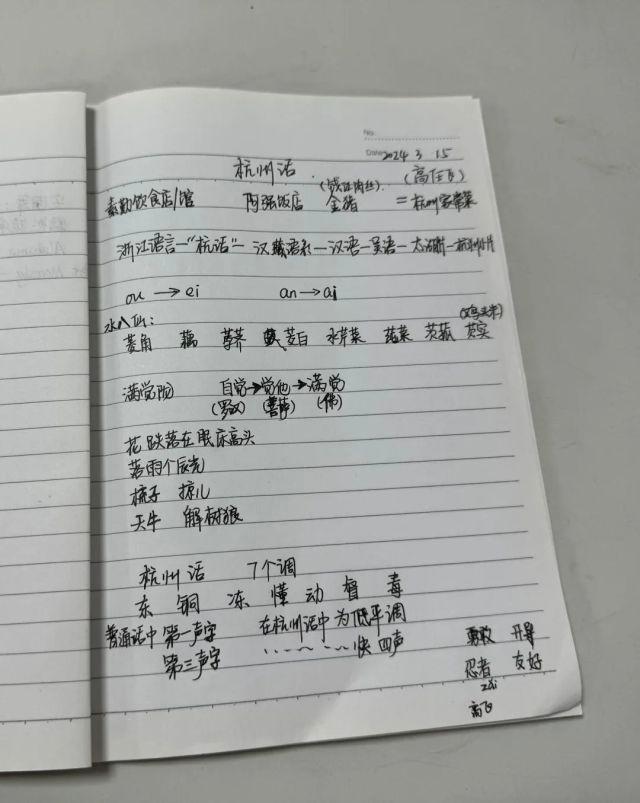 No.
Date 2024 3 15
杭州话
(钱江肉丝) (高任飞)
素勤饮食店/馆 阿强饭店 金猪 = 杭州家常菜
浙江语言—"杭话"— 汉藏语系—汉语—吴语—太湖片—杭州小片
ou → ei an → ai
水八仙: (鸡头米)
菱角 藕 荸荠 茭白 水芹菜 莼菜 茨菰 芡实
满觉陇 自觉→觉他→满觉
(罗汉) (菩萨) (佛)
花跌落在眠床高头
落雨个辰光
梳子 掠儿
天牛 解树狼
杭州话 7个调
东 铜 冻 懂 动 督 毒
普通话中 第一声字 在杭州话中 为低平调
第三声字 快 四声
勇敢 开导
忍者 友好
zai
高飞